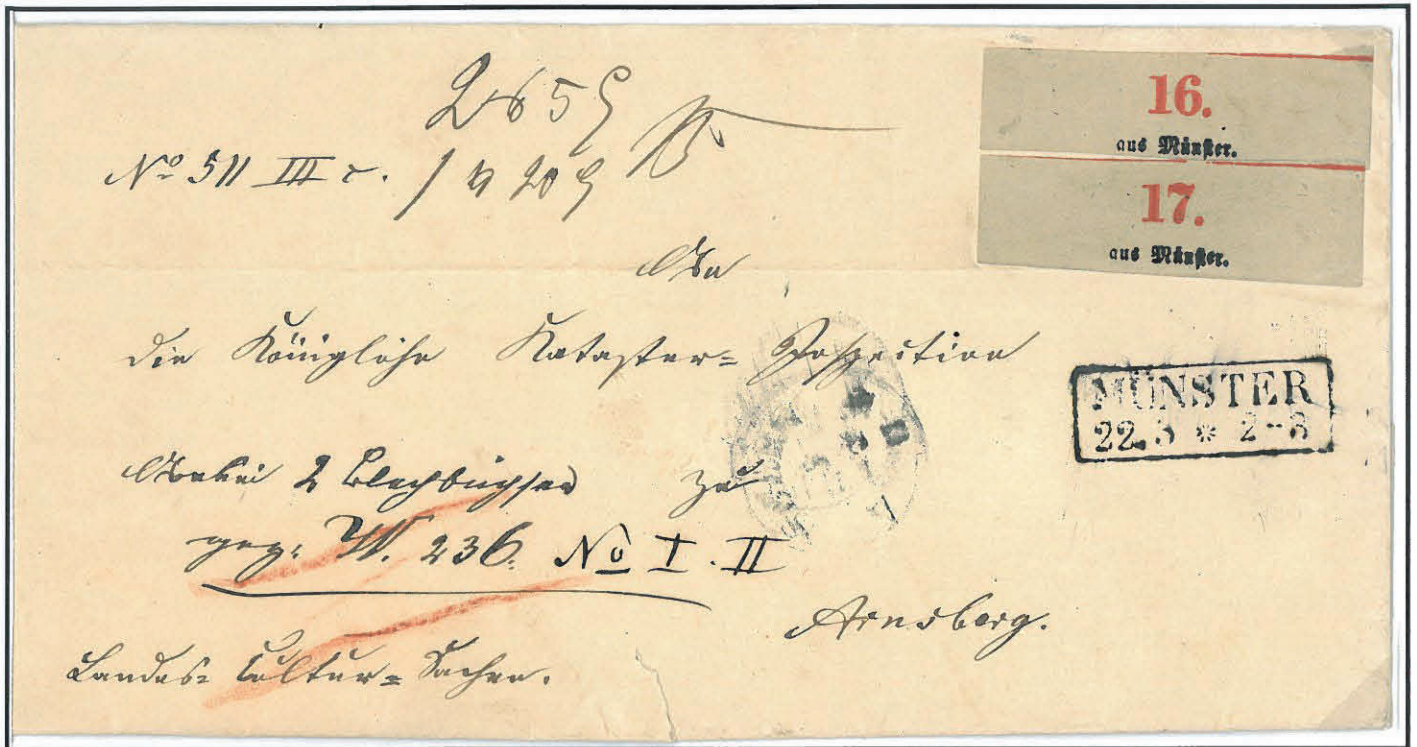 16.
aus Münster.
17.
aus Münster.
No 511 III c.
An
die Königliche Kataster= Inspection
MÜNSTER
22 3 * 2-3
Anbei 2 Blechbüchsen
zu
gez: W. 236. No I. II
Arnsberg.
Landes= Cultur= Sachen.